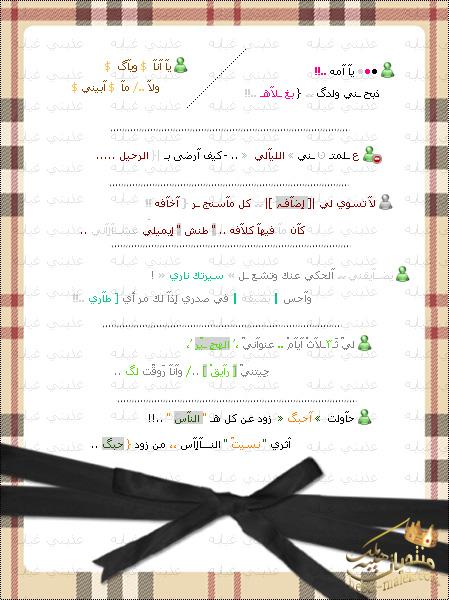 يآ آمه ..!!
ذبح ـني ولدگ ... { بغ ـلآهـ ..!!
يآ آنآ $ ويآگ $
ولآ ../ مآ $ آبيني $
ع ـلمتـ ـني » الليآلي « .. - كيف آرضى بـ || الرحيل .....
لآ تسوي لي |[ إضآفـہ ]| ... كل مآسنح ـر { آخآفه !!
كآن مآ فيهآ كلآفه .. " طنش " إيميلي عشـآلآني ..
يضـآيقني ... آلحكي عنك وتشع ـل » سيرتك ناري « !
وآحس | بضيقه | في صدري إذآ لك مر أي [ طآري ..!!
لي ثـلآث آيآم .. عنوآني ،" الهجـير "،
جيتني [ رآيق ] ../ وآنآ روقت لگ ..
حآولت » آحبگ « زود عن كل هـ " النآس " ..!!
آثري " نسيت " النـآآس ،، من زود { حبگ ..